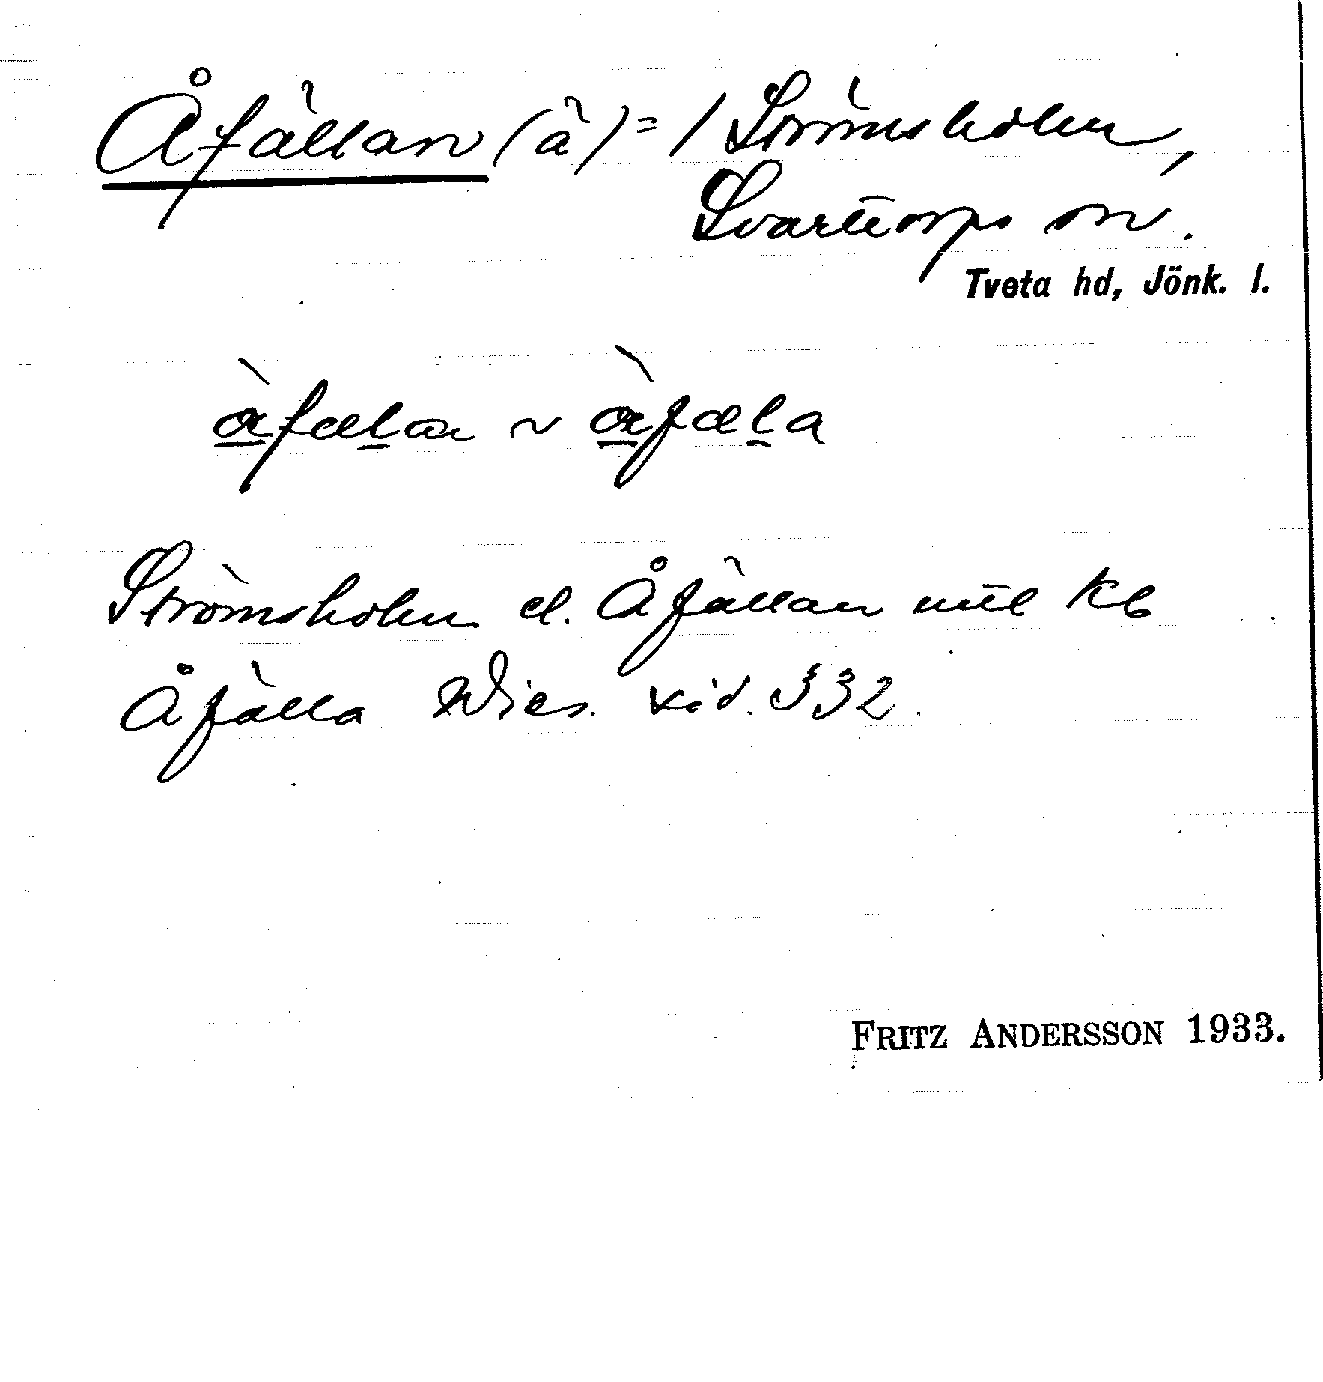 Åfällan (ä) = / Strömsholm,
Svarttorps sn.
Tveta hd, Jönk. l.
àfælan ~ àfæla
Strömsholm el. Åfällan mtl Kb
Åfälla Wies. 332
FRITZ ANDERSSON 1933.